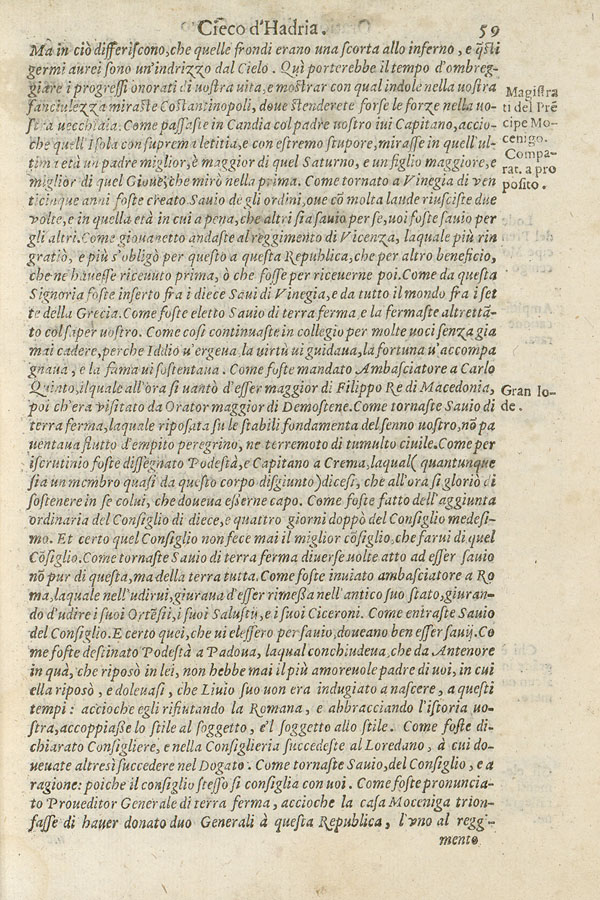 Cieco d'Hadria. 59
Ma in ciò differiscono, che quelle frondi erano una scorta allo inferno, e q̃sti
germi aurei sono un'indrizzo dal Cielo. Quì porterebbe il tempo d'ombreg-
giare i progressi onorati di uostra uita, e mostrar con qual indole nella uostra
fanciulezza miraste Costantinopoli, doue stenderete forse le forze nella uo-
stra uecchiaia. Come passaste in Candia col padre uostro iui Capitano, accio-
che quell'Isola con suprema letitia, e con estremo stupore, mirasse in quell'ul-
tima età un padre miglior, è maggior di quel Saturno, e un figlio maggiore, e
miglior di quel Gioue, che mirò nella prima. Come tornato a Vinegia di uen
ticinque anni foste creato Sauio de gli ordini, oue cõ molta laude riusciste due
volte, e in quella età in cui a pena, che altri sia sauio per se, uoi foste sauio per
gli altri. Come giouanetto andaste al reggimento di Vicenza, laquale più rin
gratiò, e più s'obligò per questo a questa Republica, che per altro beneficio,
che ne hauesse riceuuto prima, ò che fosse per riceuerne poi. Come da questa
Signoria foste inserto fra i diece Saui di Vinegia, e da tutto il mondo fra i set
te della Grecia. Come foste eletto Sauio di terra ferma, e la fermaste altrettã-
to col saper uostro. Come così continuaste in collegio per molte uoci senza gia
mai cadere, perche Iddio u'ergeua, la uirtù ui guidaua, la fortuna u'accompa
gnaua, e la fama ui sostentaua. Come foste mandato Ambasciatore a Carlo
Quinto, ilquale all'ora si uantò d'esser maggior di Filippo Re di Macedonia,
poi ch'era visitato da Orator maggior di Demostene. Come tornaste Sauio di
terra ferma, laquale riposata su le stabili fondamenta del senno uostro, nõ pa
uentaua flutto d'empito peregrino, ne terremoto di tumulto ciuile. Come per
iscrutinio foste dissegnato Podestà, e Capitano a Crema, laqual (quantunque
sia un membro quasi da questo corpo disgiunto) dicesi, che all'ora si gloriò di
sostenere in se colui, che doueua esserne capo. Come foste fatto dell'aggiunta
ordinaria del Consiglio di diece, e quattro giorni doppò del Consiglio medesi-
mo. Et certo quel Consiglio non fece mai il miglior cõsiglio, che farui di quel
Cõsiglio. Come tornaste Sauio di terra ferma diuerse uolte atto ad esser sauio
nõ pur di questa, ma della terra tutta. Come foste inuiato ambasciatore a Ro
ma, laquale nell'udirui, giuraua d'esser rimessa nell'antico suo stato, giuran-
do d'udire i suoi Ortẽsii, i suoi Salustij, e i suoi Ciceroni. Come entraste Sauio
del Consiglio. E certo quei, che ui elessero per sauio, doueano ben esser sauij. Co
me foste destinato Podestà a Padoua, laqual conchiudeua, che da Antenore
in quà, che riposò in lei, non hebbe mai il più amoreuole padre di uoi, in cui
ella riposò, e doleuasi, che Liuio suo non era indugiato a nascere, a questi
tempi: accioche egli rifiutando la Romana, e abbracciando l'istoria uo-
stra, accoppiasse lo stile al soggetto, e'l soggetto allo stile. Come foste di-
chiarato Consigliere, e nella Consiglieria succedeste al Loredano, à cui do-
ueuate altresì succedere nel Dogato. Come tornaste Sauio, del Consiglio, e a
ragione: poiche il consiglio stesso si consiglia con uoi. Come foste pronuncia-
to Proueditor Generale di terra ferma, accioche la casa Moceniga trion-
fasse di hauer donato duo Generali à questa Republica, l'vno al reggi-
mento
Magistra
ti del Prẽ
cipe Mo-
cenigo.
Compa-
rat. a pro
posito.
Gran lo-
de.